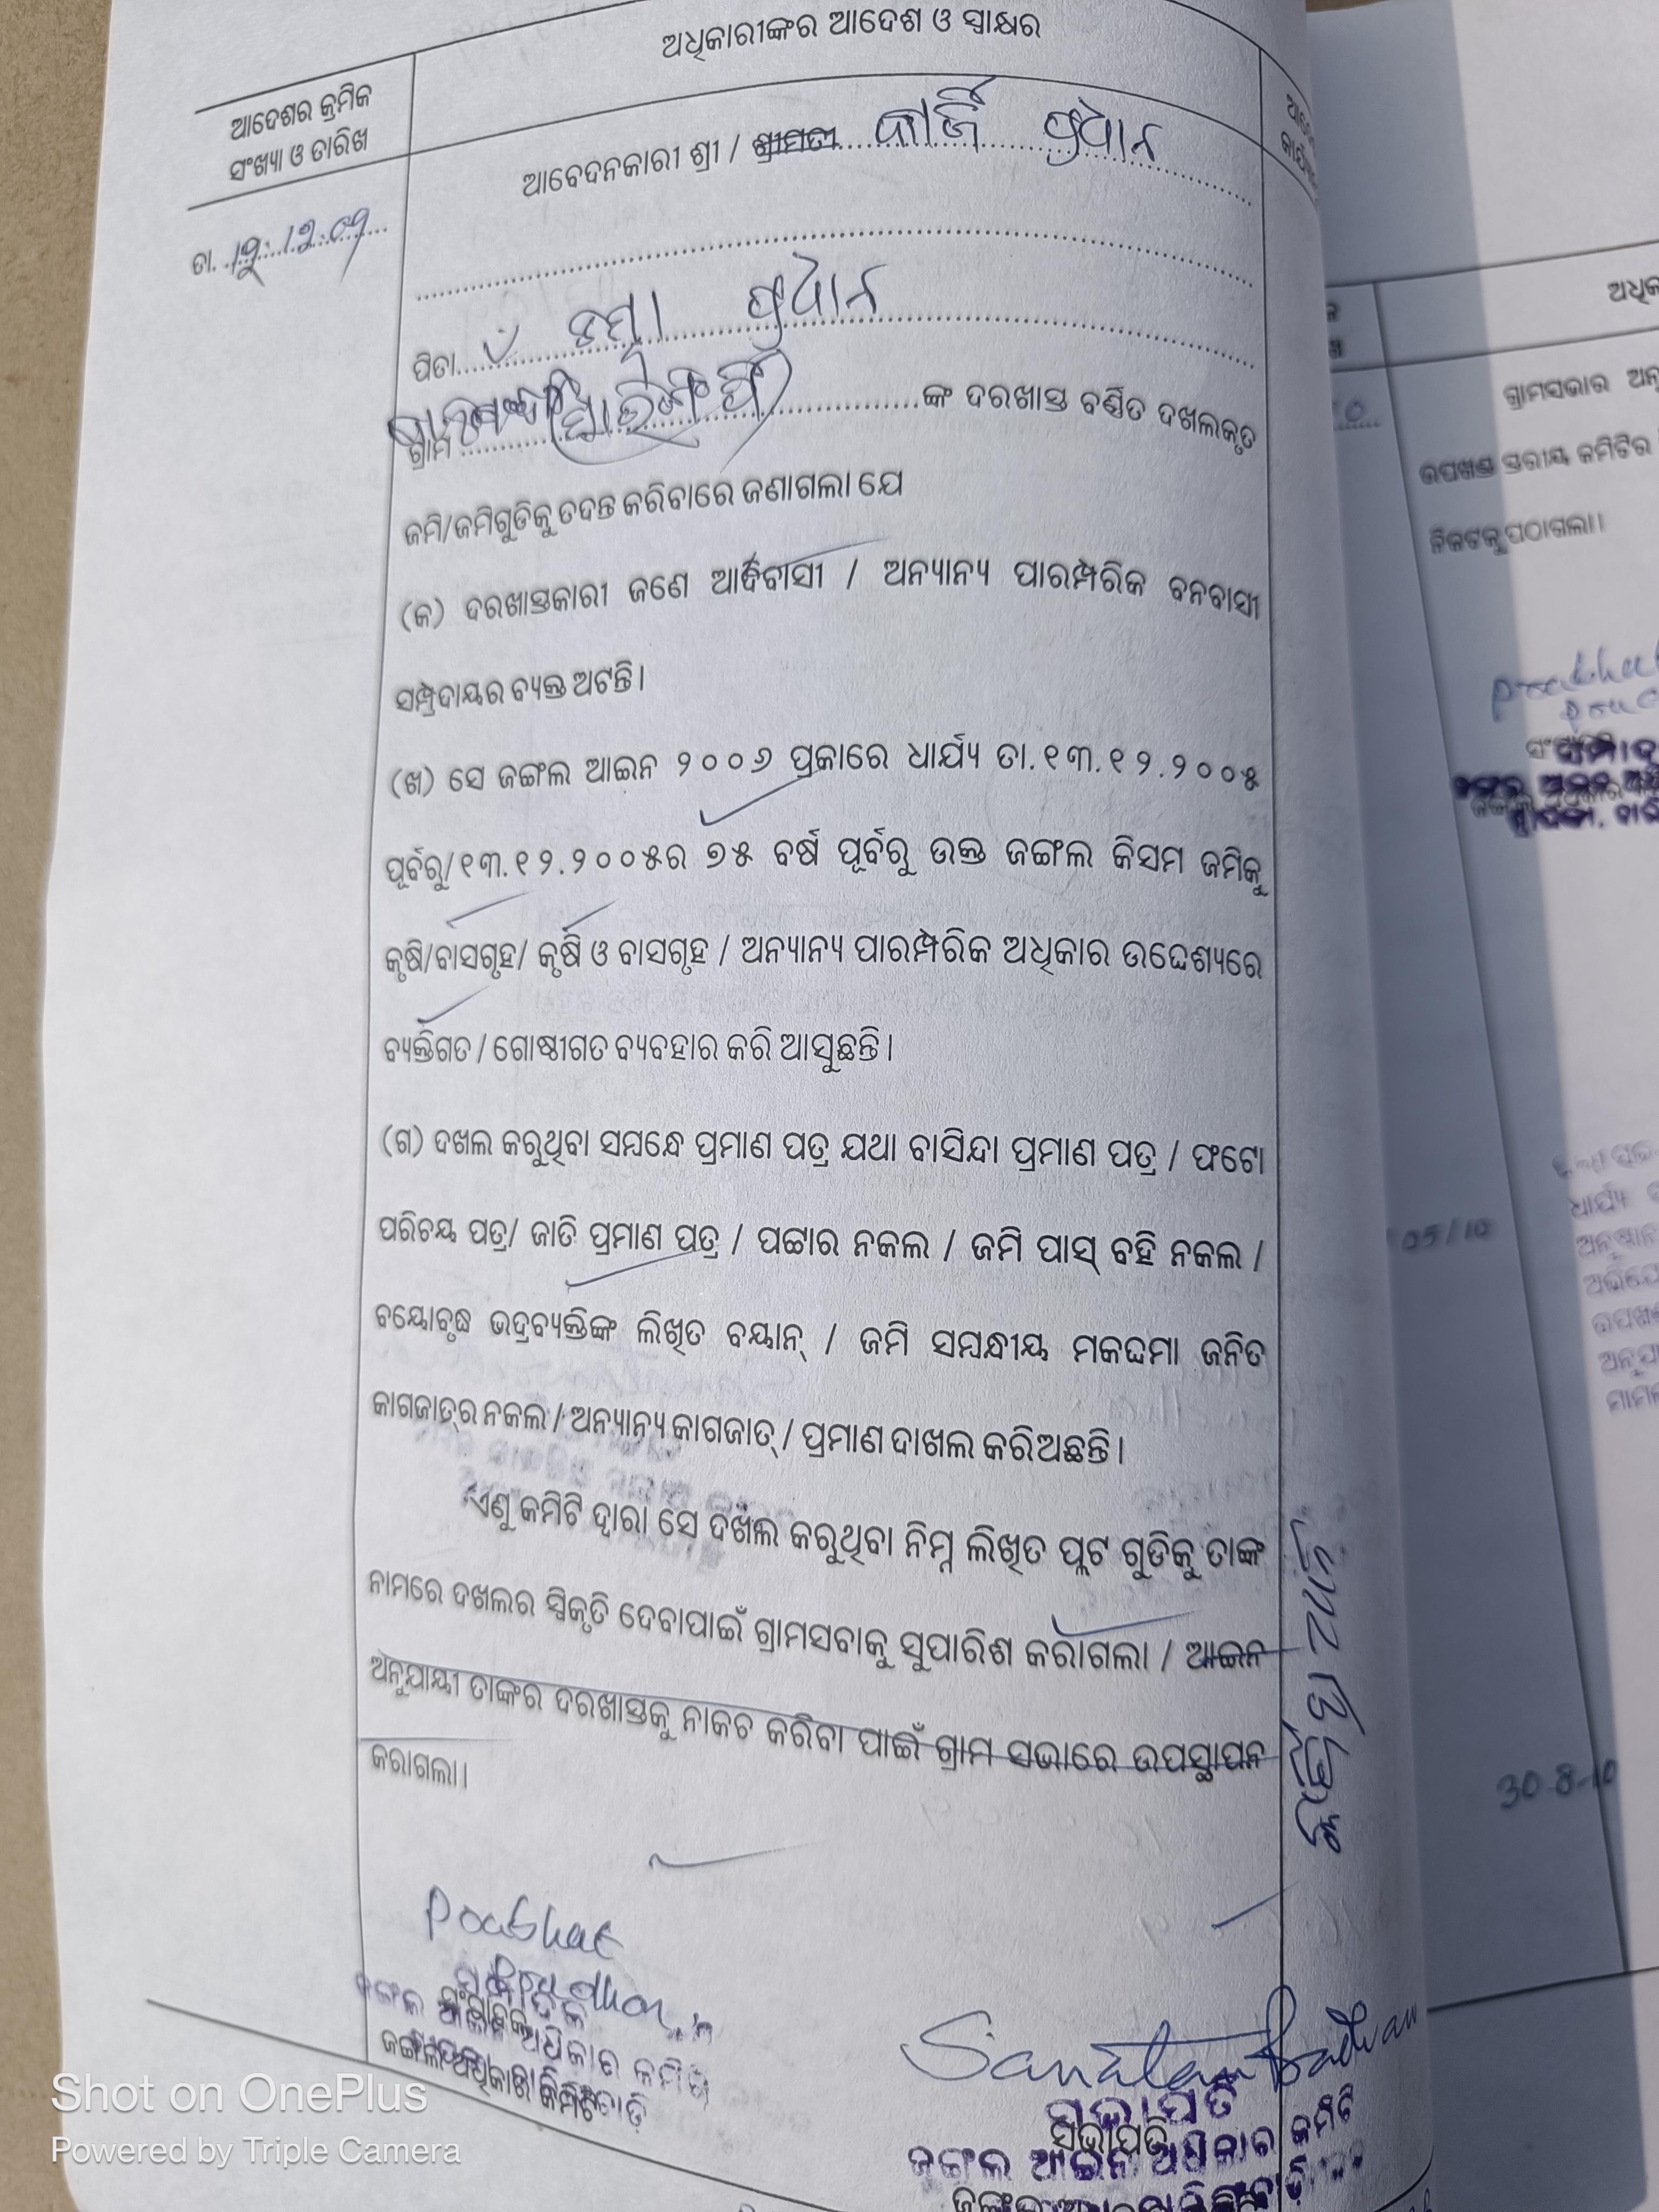 ଅଧିକାରୀଙ୍କର ଆଦେଶ ଓ ସ୍ୱାକ୍ଷର
ଆଦେଶର କ୍ରମିକ
ସଂଖ୍ୟା ଓ ତାରିଖ
ଆବେଦନକାରୀ ଶ୍ରୀ / ଶ୍ରୀମତୀ ପ୍ରଧାନ
ତା.
ପିତା ପ୍ରଧାନ
ଗ୍ରାମ ଙ୍କ ଦରଖାସ୍ତ ବର୍ଣ୍ଣିତ ଦଖଲକୃତ
ଜମି/ଜମିଗୁଡିକୁ ତଦନ୍ତ କରିବାରେ ଜଣାଗଲା ଯେ
(କ) ଦରଖାସ୍ତକାରୀ ଜଣେ ଆଦିବାସୀ / ଅନ୍ୟାନ୍ୟ ପାରମ୍ପରିକ ବନବାସୀ
ସମ୍ପ୍ରଦାୟର ବ୍ୟକ୍ତ ଅଟନ୍ତି।
(ଖ) ସେ ଜଙ୍ଗଲ ଆଇନ ୨୦୦୬ ପ୍ରକାରେ ଧାର୍ଯ୍ୟ ତା.୧୩.୧୨.୨୦୦୫
ପୂର୍ବରୁ/୧୩.୧୨.୨୦୦୫ର ୭୫ ବର୍ଷ ପୂର୍ବରୁ ଉକ୍ତ ଜଙ୍ଗଲ କିସମ ଜମିକୁ
କୃଷି/ବାସଗୃହ/ କୃଷି ଓ ବାସଗୃହ / ଅନ୍ୟାନ୍ୟ ପାରମ୍ପରିକ ଅଧିକାର ଉଦ୍ଦେଶ୍ୟରେ
ବ୍ୟକ୍ତିଗତ / ଗୋଷ୍ଠୀଗତ ବ୍ୟବହାର କରି ଆସୁଛନ୍ତି।
(ଗ) ଦଖଲ କରୁଥିବା ସମ୍ବନ୍ଧେ ପ୍ରମାଣ ପତ୍ର ଯଥା ବାସିନ୍ଦା ପ୍ରମାଣ ପତ୍ର / ଫଟୋ
ପରିଚୟ ପତ୍ର/ ଜାତି ପ୍ରମାଣ ପତ୍ର / ପଟ୍ଟାର ନକଲ / ଜମି ପାସ୍ ବହି ନକଲ /
ବୟୋବୃଦ୍ଧ ଭଦ୍ରବ୍ୟକ୍ତିଙ୍କ ଲିଖିତ ବୟାନ୍ / ଜମି ସମ୍ବନ୍ଧୀୟ ମକଦ୍ଦମା ଜନିତ
କାଗଜାତ୍‌ର ନକଲ / ଅନ୍ୟାନ୍ୟ କାଗଜାତ୍ / ପ୍ରମାଣ ଦାଖଲ କରିଅଛନ୍ତି।
ଏଣୁ କମିଟି ଦ୍ୱାରା ସେ ଦଖଲ କରୁଥିବା ନିମ୍ନ ଲିଖିତ ପ୍ଲଟ ଗୁଡିକୁ ତାଙ୍କ
ନାମରେ ଦଖଲର ସ୍ୱିକୃତି ଦେବାପାଇଁ ଗ୍ରାମସବାକୁ ସୁପାରିଶ କରାଗଲା / ଆଇନ
ଅନୁଯାୟୀ ତାଙ୍କର ଦରଖାସ୍ତକୁ ନାକଚ କରିବା ପାଇଁ ଗ୍ରାମ ସଭାରେ ଉପସ୍ଥାପନ
କରାଗଲା।
Prabhat
Pradhan
ଜଙ୍ଗଲ ଅଧିକାର କମିଟି
Sanatan Pradhan
ସଭାପତି
ସଭାପତି
ଜଙ୍ଗଲ ଆଇନ ଅଧିକାର କମିଟି
ଗ୍ରାମସଭାର
ଉପଖଣ୍ଡ ସ୍ତରୀୟ କମିଟିର
ନିକଟକୁ ପଠାଗଲା।
05/10
30-8-10
Shot on OnePlus
Powered by Triple Camera